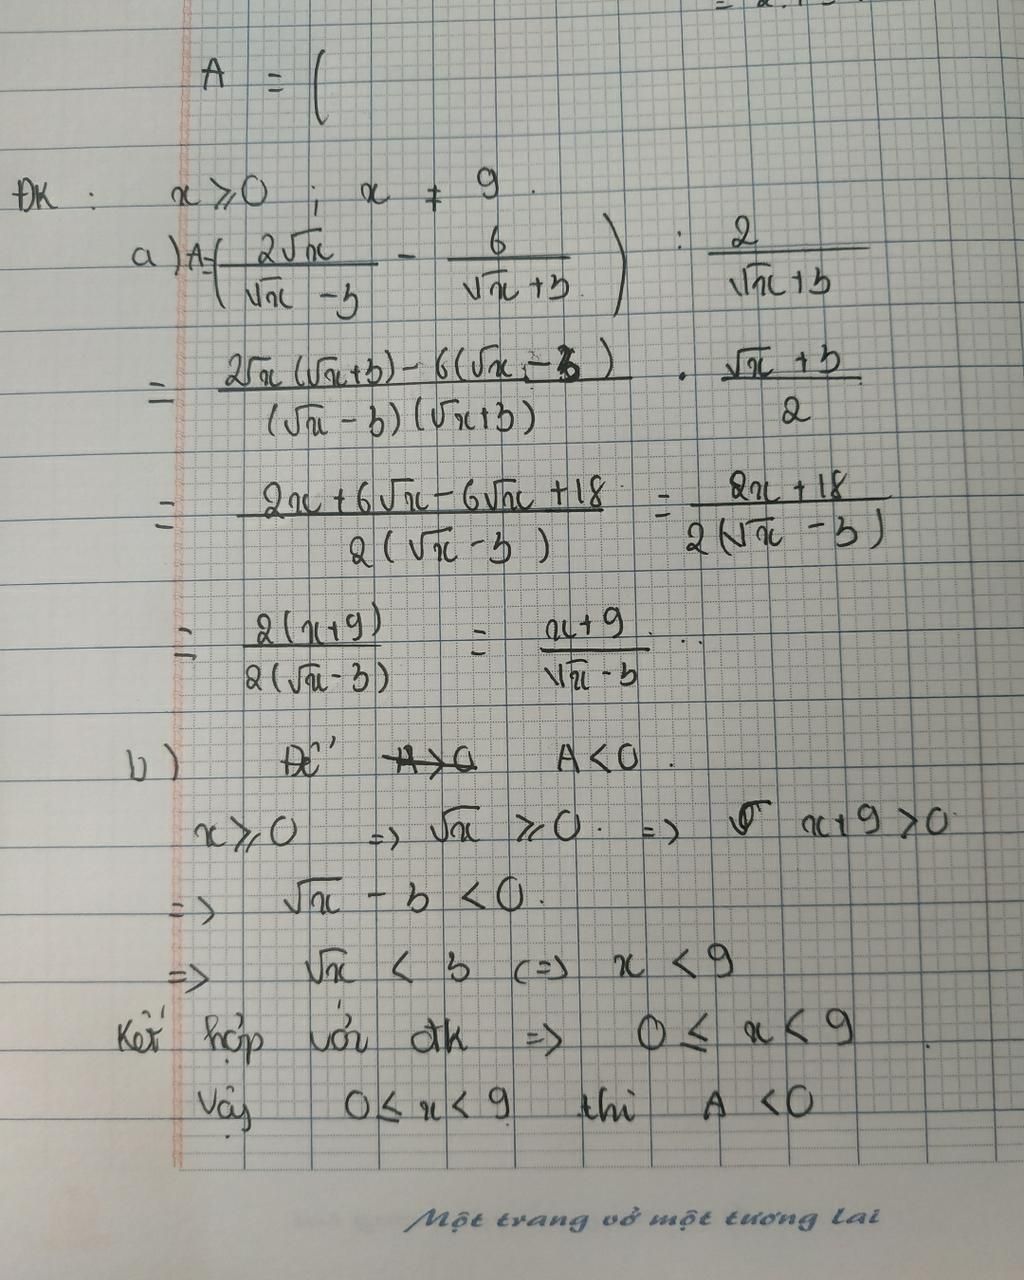 A = (
ĐK : x ≥ 0 ; x ≠ 9 .
a) A = ( 2√x / (√x - 3) - 6 / (√x + 3) ) : 2 / (√x + 3)
= (2√x (√x + 3) - 6(√x - 3)) / ((√x - 3)(√x + 3)) . (√x + 3) / 2
= (2x + 6√x - 6√x + 18) / (2(√x - 3)) = (2x + 18) / (2(√x - 3))
= 2(x + 9) / (2(√x - 3)) = (x + 9) / (√x - 3) ..
b) Để A > 0 A < 0 .
x ≥ 0 => √x ≥ 0 . => x + 9 > 0
=> √x - 3 < 0 .
=> √x < 3 (=> x < 9
Kết hợp với đk => 0 ≤ x < 9 .
Vậy 0 ≤ x < 9 thì A < 0
Một trang vở một tương lai